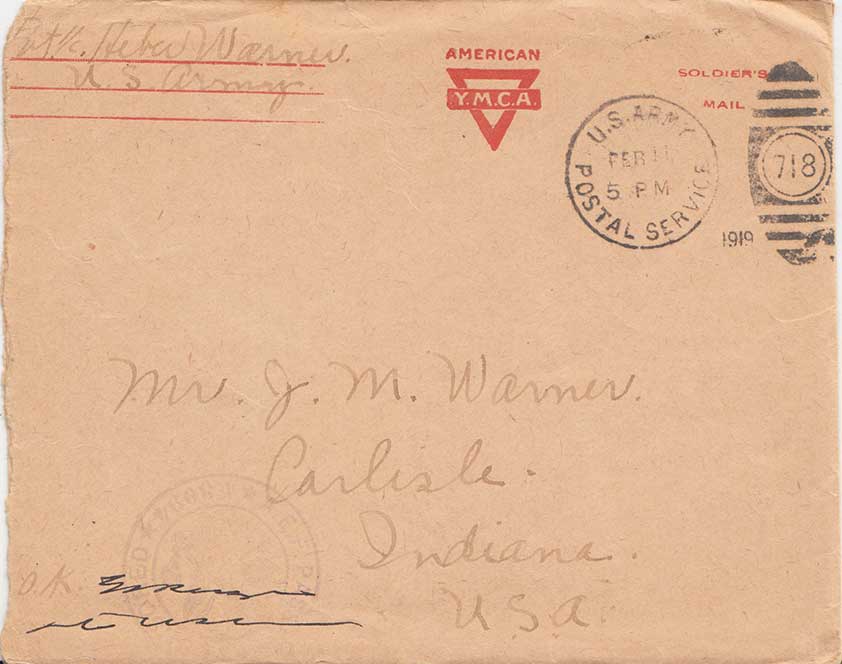 Heber Warner.
U. S. Army.
AMERICAN
Y.M.C.A.
SOLDIER'S
MAIL
U.S. ARMY
POSTAL SERVICE
FEB 11
5 PM
1919
718
Mr. J. M. Warner.
Carlisle.
Indiana.
U.S.A.
O.K.